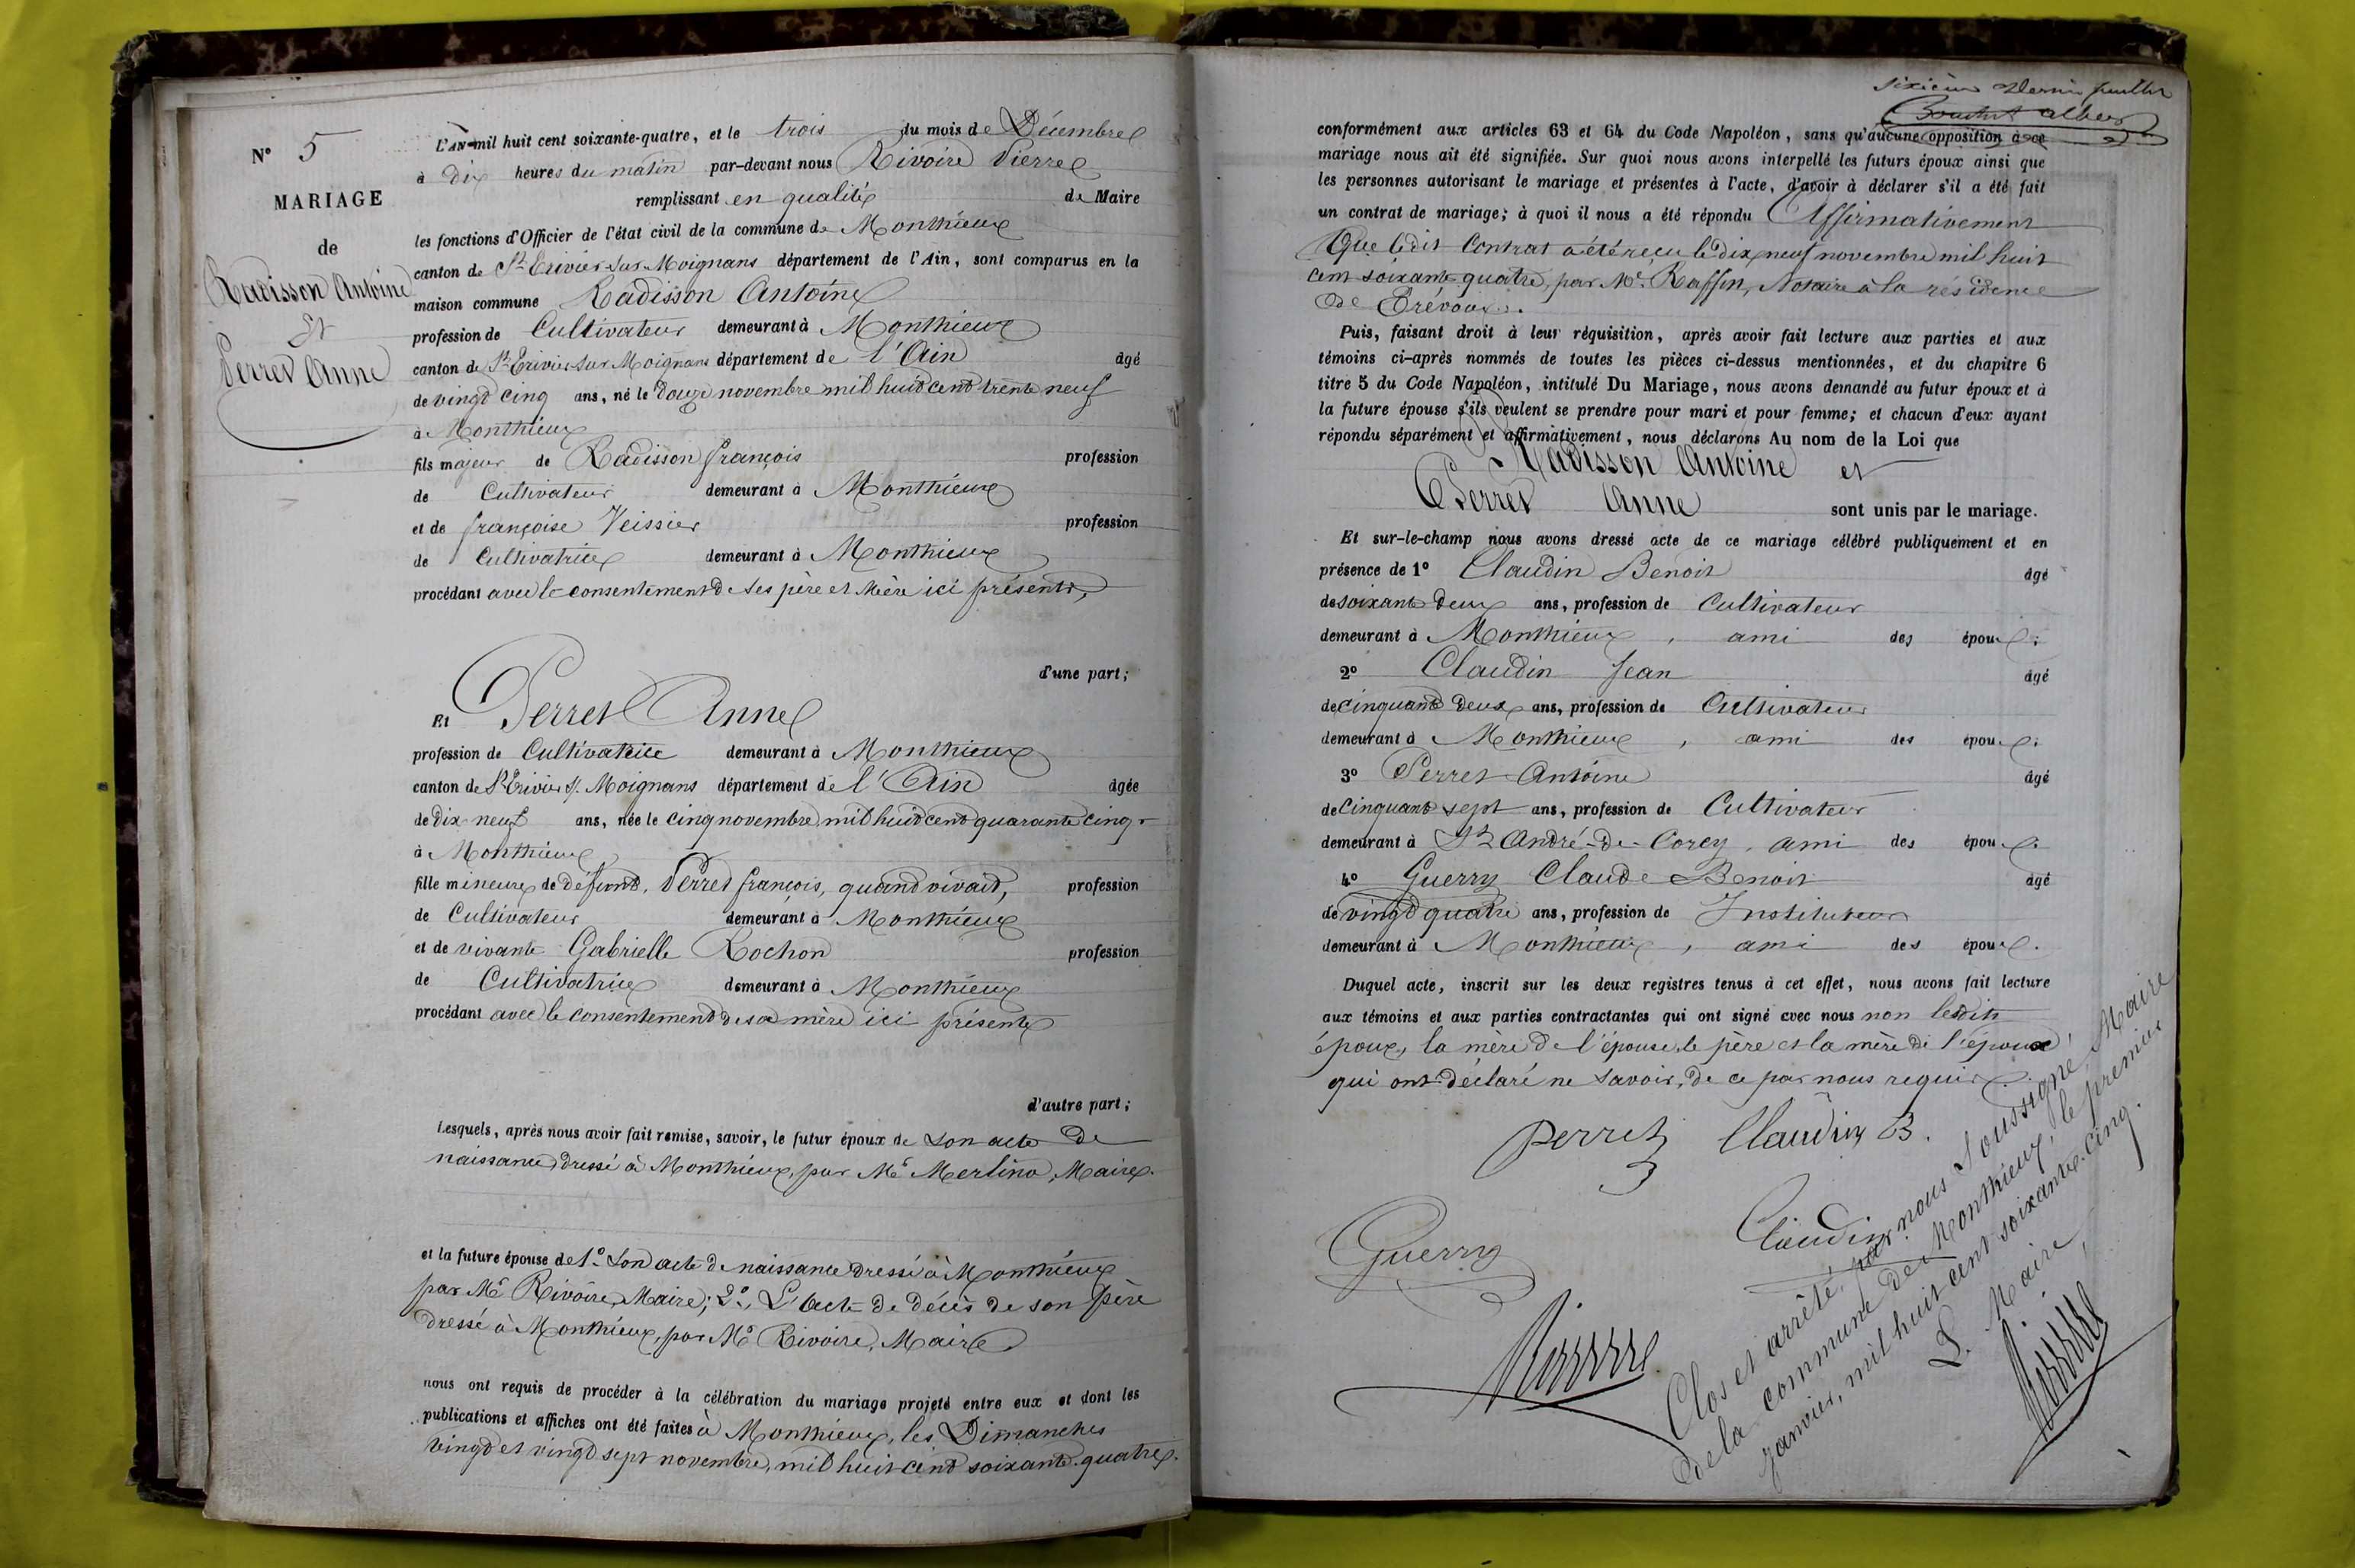 N° 5
MARIAGE
de
Radisson Antoine
Et
Perret Anne
L'AN mil huit cent soixante-quatre, et le trois du mois de Décembre
à dix heures du matin par-devant nous Rivoire Pierre
remplissant en qualité de Maire
les fonctions d'Officier de l'état civil de la commune de Monthieux
canton de St Trivier-sur-Moignans département de l'Ain, sont comparus en la
maison commune Radisson Antoine
profession de Cultivateur demeurant à Monthieux
canton de St Trivier sur Moignans département de l'Ain âgé
de vingt cinq ans, né le douze novembre mil huit cent trente neuf
à Monthieux
fils majeur de Radisson françois profession
de Cultivateur demeurant à Monthieux
et de françoise Veissier profession
de Cultivatrice demeurant à Monthieux
procédant avec le consentement de ses père et Mère ici présents,
d'une part;
Et Perret Anne
profession de Cultivatrice demeurant à Monthieux
canton de St Trivier s/. Moignans département de l'Ain âgée
de dix-neuf ans, née le cinq novembre mil huit cent quarante cinq
à Monthieux
fille mineure de défunt, Perret françois, quand vivait, profession
de Cultivateur demeurant à Monthieux
et de vivante Gabrielle Rochon profession
de Cultivatrice demeurant à Monthieux
procédant avec le consentement de sa mère ici présente
d'autre part;
Lesquels, après nous avoir fait remise, savoir, le futur époux de son acte de
naissance dressé à Monthieux, par Mr Merlino, Maire.
et la future épouse de 1° Son acte de naissance dressé à Monthieux
par Mr Rivoire, Maire; 2°, L'acte de décès de son père
dressé à Monthieux, par Mr Rivoire, Maire
nous ont requis de procéder à la célébration du mariage projeté entre eux et dont les
publications et affiches ont été faites à Monthieux, les Dimanches
vingt et vingt sept novembre, mil huit cent soixante-quatre.
sixième dernier feuillet
conformément aux articles 63 et 64 du Code Napoléon, sans qu'aucune opposition à ce
mariage nous ait été signifiée. Sur quoi nous avons interpellé les futurs époux ainsi que
les personnes autorisant le mariage et présentes à l'acte, d'avoir à déclarer s'il a été fait
un contrat de mariage; à quoi il nous a été répondu Affirmativement
Que ledit Contrat a été reçu le dix neuf novembre mil huit
cent soixante-quatre, par Me. Raffin, Notaire à la résidence
de Trévoux.
Puis, faisant droit à leur réquisition, après avoir fait lecture aux parties et aux
témoins ci-après nommés de toutes les pièces ci-dessus mentionnées, et du chapitre 6
titre 5 du Code Napoléon, intitulé Du Mariage, nous avons demandé au futur époux et à
la future épouse s'ils veulent se prendre pour mari et pour femme; et chacun d'eux ayant
répondu séparément et affirmativement, nous déclarons Au nom de la Loi que
Radisson Antoine et
Perret Anne sont unis par le mariage.
Et sur-le-champ nous avons dressé acte de ce mariage célébré publiquement et en
présence de 1° Claudin Benoit âgé
de soixante deux ans, profession de Cultivateur
demeurant à Monthieux, ami des époux.
2° Claudin Jean âgé
de cinquante deux ans, profession de Cultivateur
demeurant à Monthieux, ami des époux.
3° Perret Antoine âgé
de cinquante sept ans, profession de Cultivateur
demeurant à St André-de-Corcy, ami des époux.
4° Guerry Claude Benoit âgé
de vingt quatre ans, profession de Instituteur
demeurant à Monthieux, ami des époux.
Duquel acte, inscrit sur les deux registres tenus à cet effet, nous avons fait lecture
aux témoins et aux parties contractantes qui ont signé avec nous non lesdits
époux, la mère de l'épouse, le père et la mère de l'époux,
qui ont déclaré ne savoir, de ce par nous requis.
Perret Claudin B.
Guerry Claudin
Clos et arrêté, par nous Soussigné, Maire
de la commune de Monthieux, le premier
janvier, mil huit cent soixante-cinq.
L. Maire,